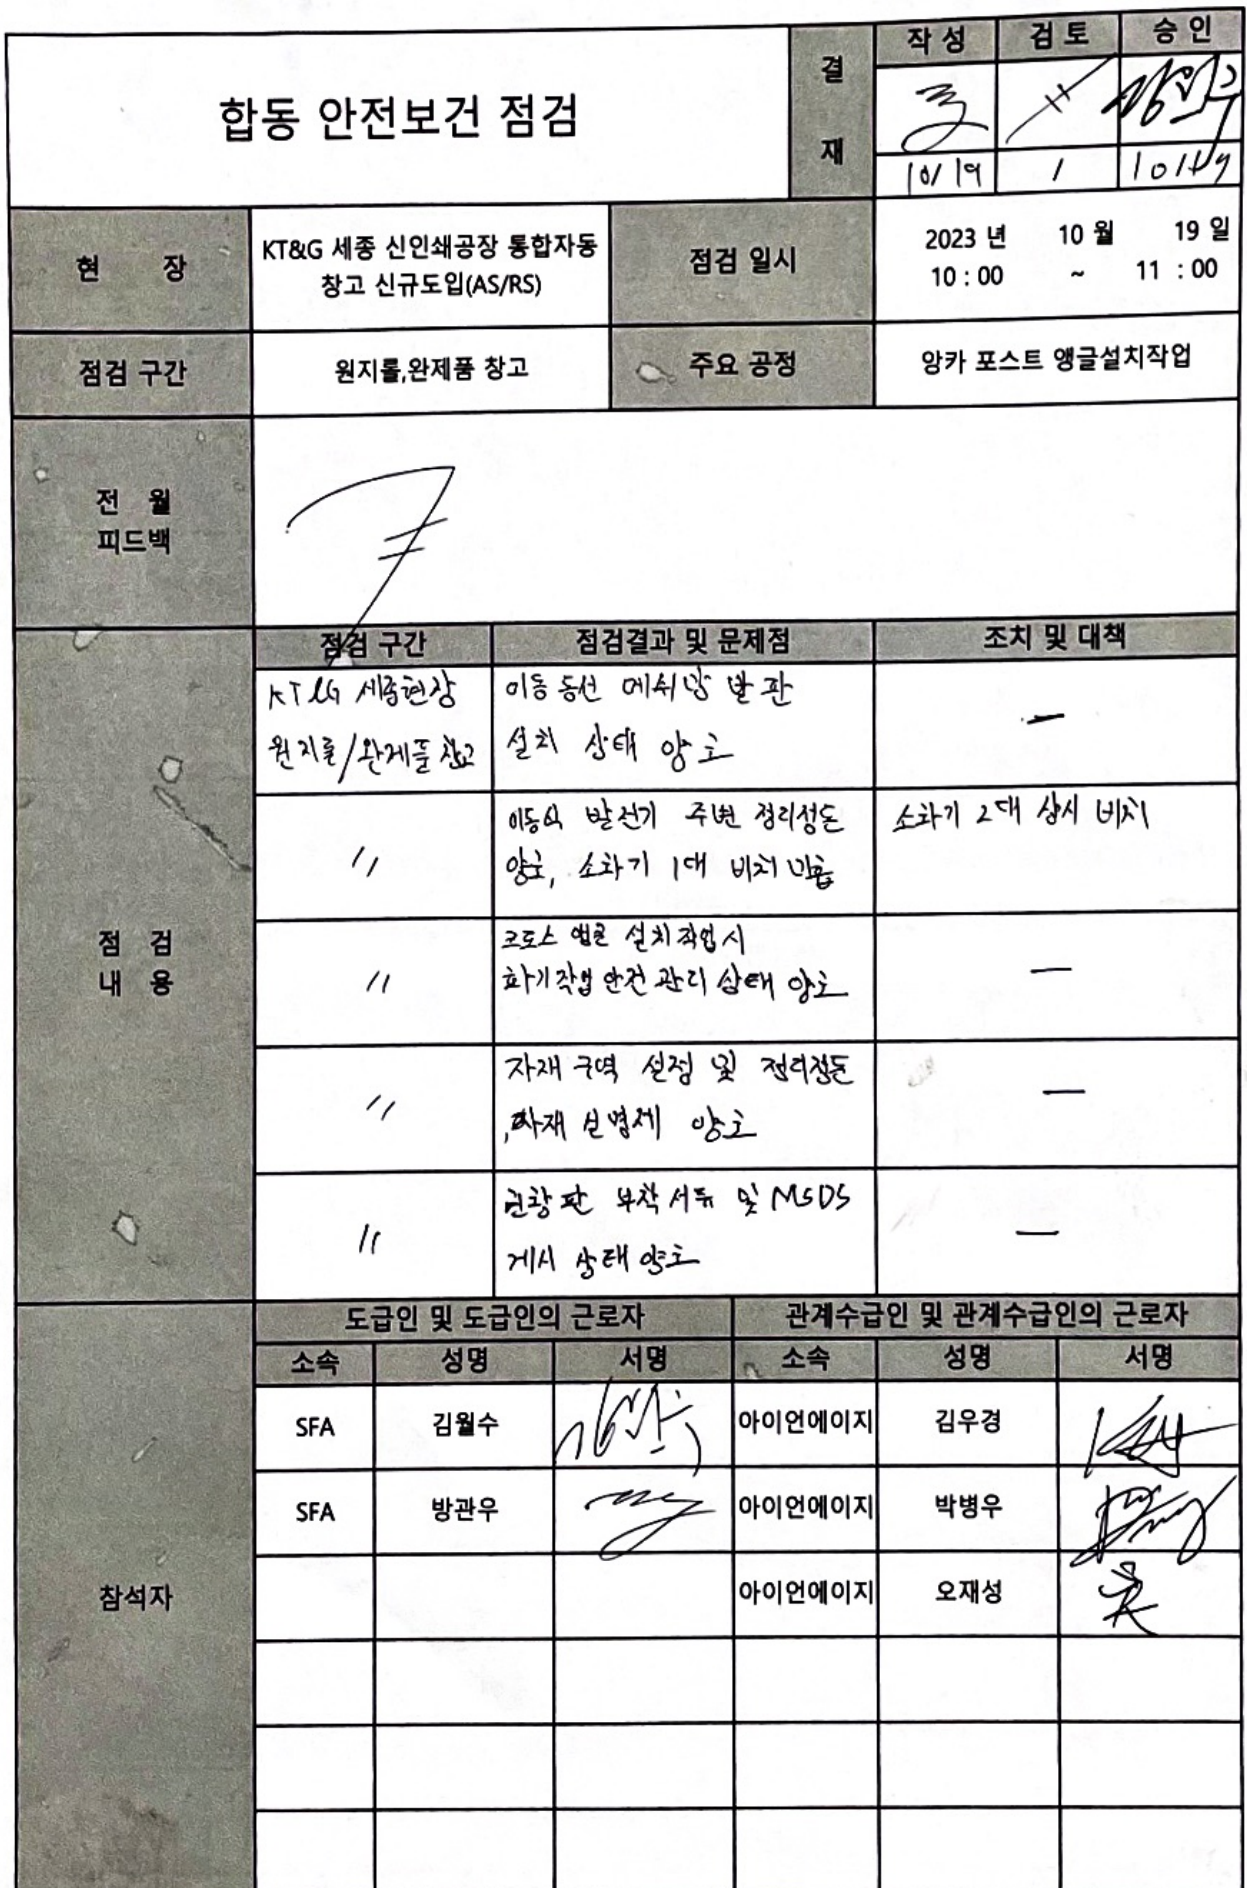 작 성 검 토 승 인
결
재
합동 안전보건 점검
10/19 / 10/19
현 장
KT&G 세종 신인쇄공장 통합자동
창고 신규도입(AS/RS)
점검 일시
2023 년 10 월 19 일
10 : 00 ~ 11 : 00
점검 구간
원지롤,완제품 창고
주요 공정
앙카 포스트 앵글설치작업
전 월
피드백
점검 구간 점검결과 및 문제점 조치 및 대책
점 검
내 용
KT&G 세종현장
원지롤/완제품 창고
이동동선 메쉬망 발판
설치 상태 양호
—
〃
이동식 발전기 주변 정리정돈
양호, 소화기 1대 비치 미흡
소화기 2대 상시 비치
〃
크로스 앵글 설치작업시
화기작업 안전관리 상태 양호
—
〃
자재 구역 설정 및 정리정돈
,자재 실명제 양호
—
〃
현황판 부착서류 및 MSDS
게시 상태 양호
—
참석자
도급인 및 도급인의 근로자 관계수급인 및 관계수급인의 근로자
소속 성명 서명 소속 성명 서명
SFA 김월수 아이언에이지 김우경
SFA 방관우 아이언에이지 박병우
아이언에이지 오재성